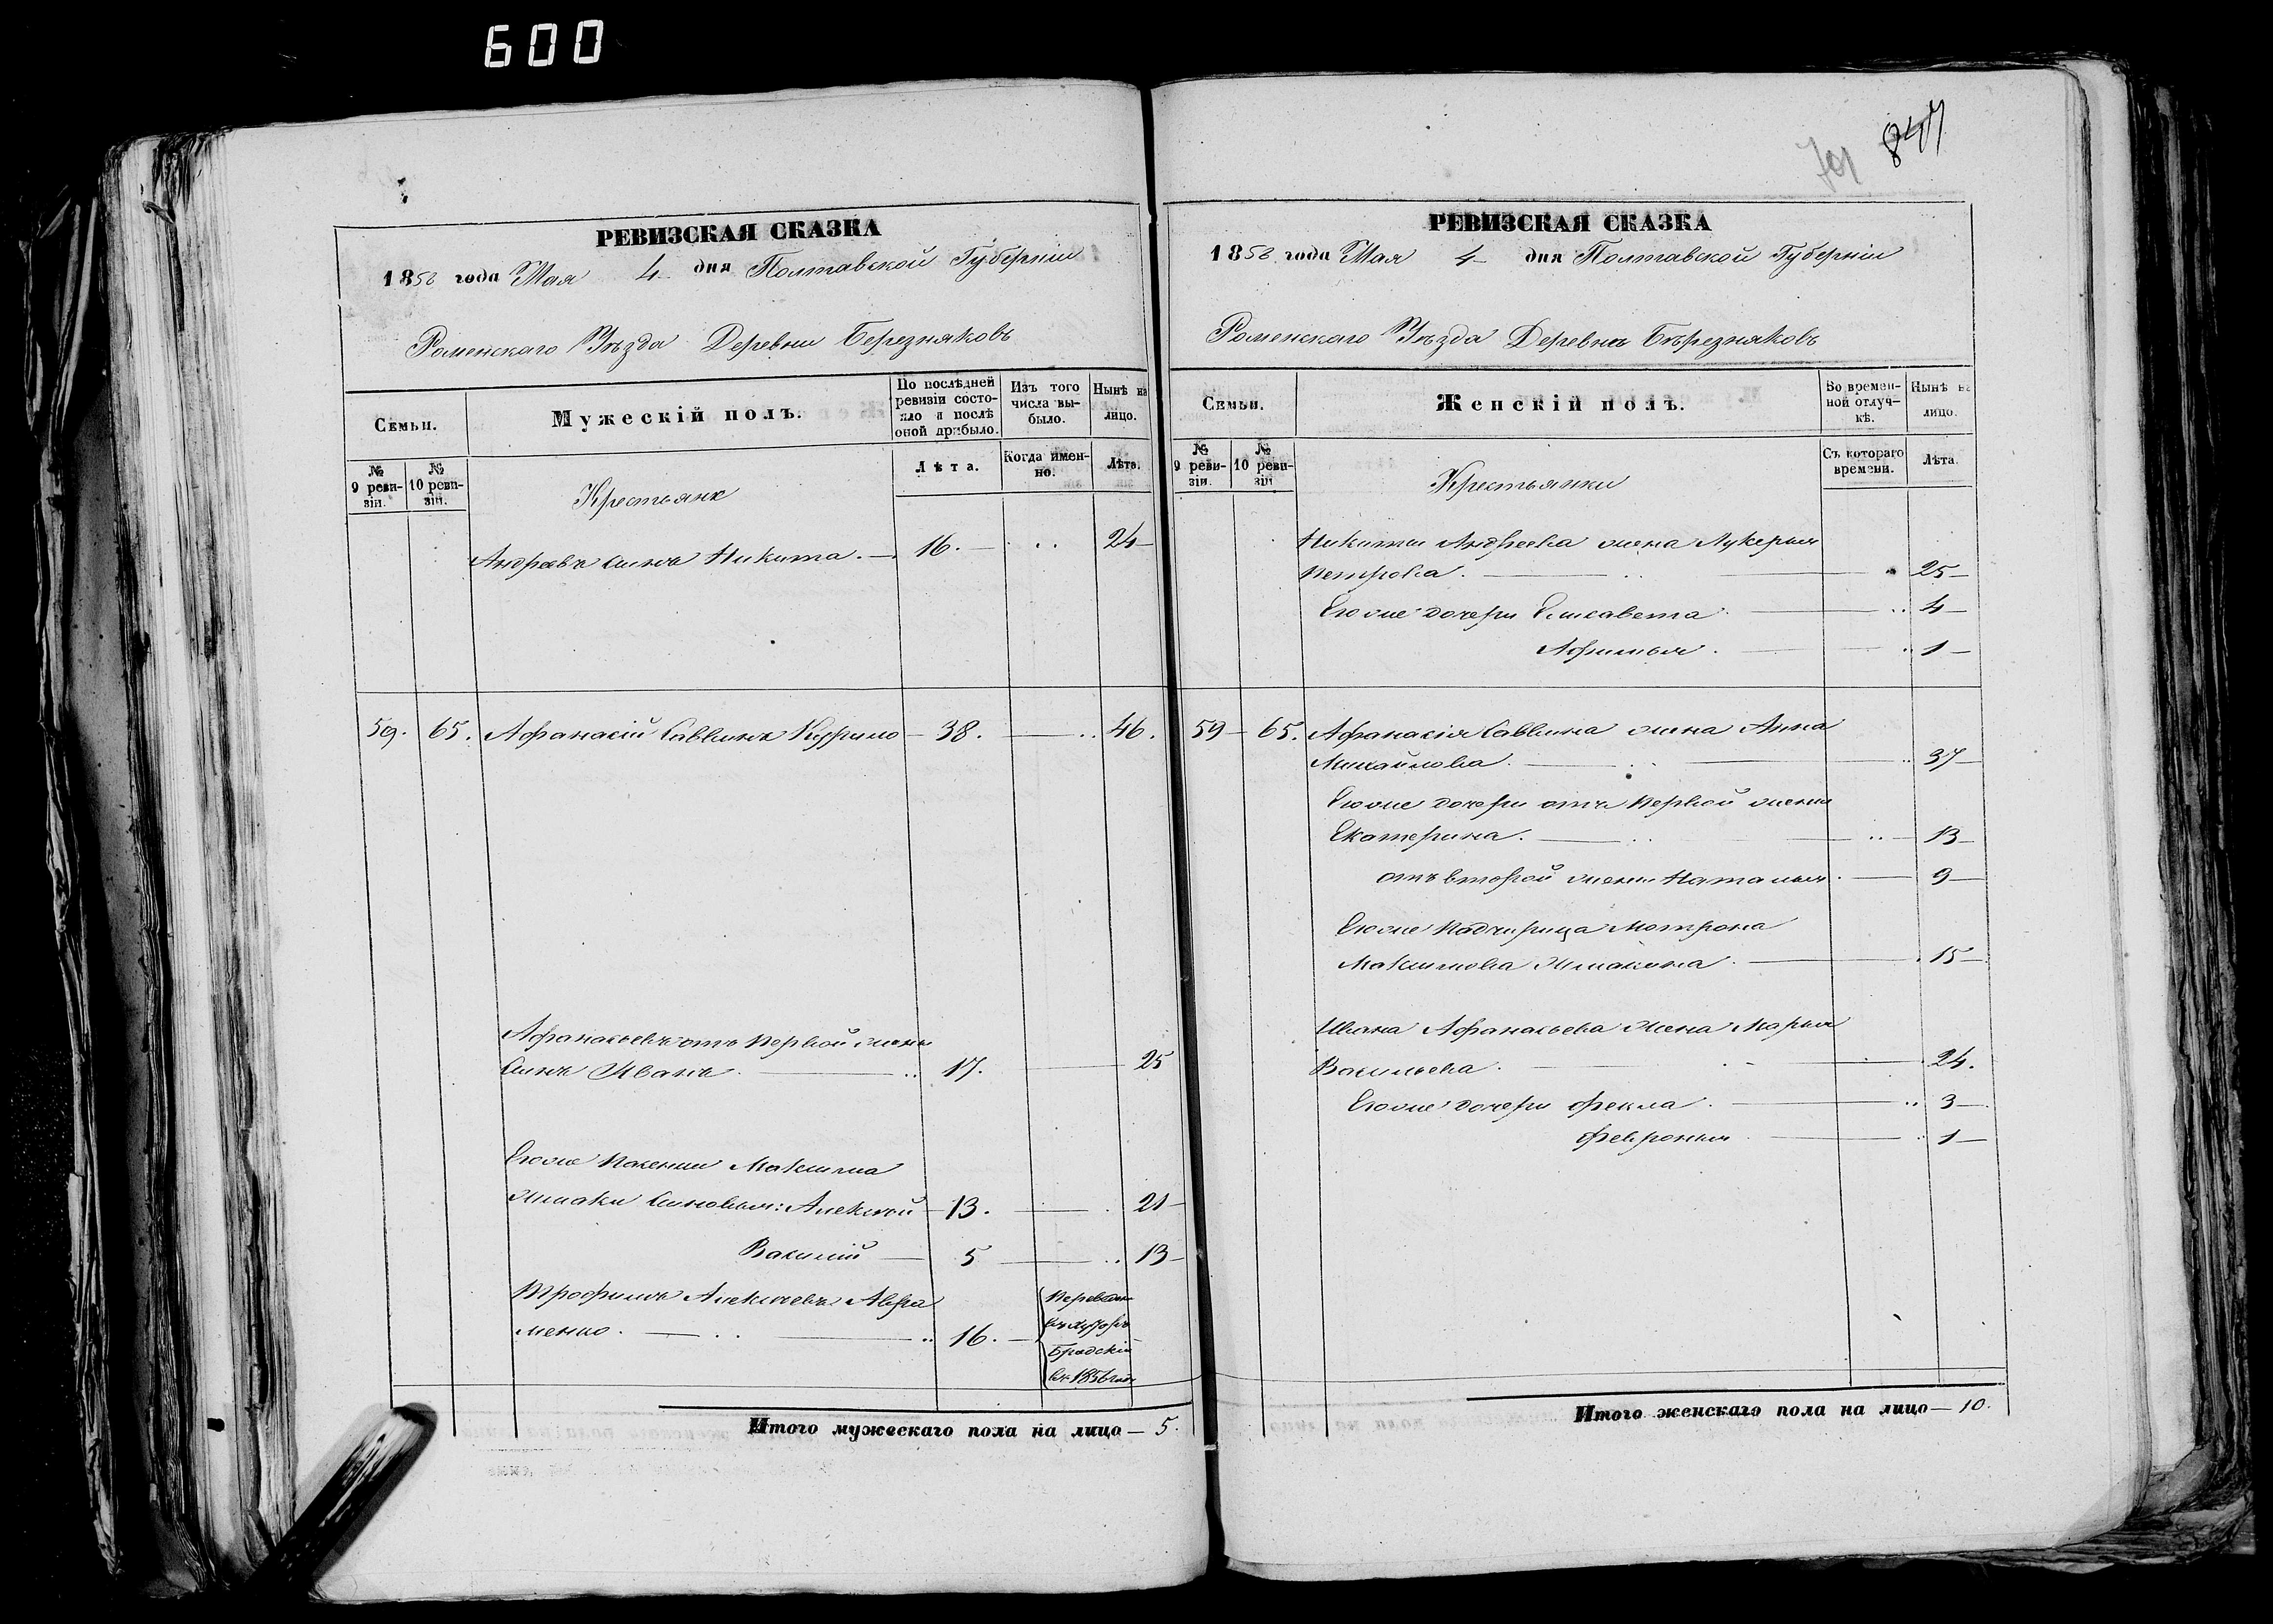 600
РЕВИЗСКАЯ СКАЗКА
1858 года Мая 4 дня Полтавской Губерніи
Роменскаго Уѣзда Деревни Березняковъ
Семьи.
Мужескій полъ.
По послѣдней ревизіи состояло и послѣ оной прибыло.
Изъ того числа выбыло.
Нынѣ на лицо.
№ 9 ревизіи.
№ 10 ревизіи.
Крестьяне
Лѣта.
Когда именно.
Лѣта.
Андреевъ сынъ Никита. — 16. — 24 —
59. 65. Афанасій Саввинъ Курило — 38. — 46.
Афанасьевъ отъ первой жены
сынъ Иванъ. — 17. — 25
Егоже пасынки Максима
сыновья: Алексей — 13. — 21 —
Василій — 5 — 13 —
Трофимъ Алексеевъ Авра
менко. — 16. —
Переведен
въ хуторъ
въ 1856 годе
Итого мужескаго пола на лицо — 5.
847
РЕВИЗСКАЯ СКАЗКА
1858 года Мая 4 дня Полтавской Губерніи
Роменскаго Уѣзда Деревни Березняковъ
Семьи.
Женскій полъ.
Во временной отлучкѣ.
Нынѣ на лицо.
№ 9 ревизіи.
№ 10 ревизіи
Крестьянки
Съ котораго времени.
Лѣта.
Никиты Андреева жена Лукерья
Петрова. — 25 —
Егоже дочери Елисавета — 4 —
Афимья. — 1 —
59 — 65. Афанасія Саввина жена Анна
Михайлова. — 37 —
Егоже дочери отъ первой жены
Екатерина. — 13 —
отъ второй жены Наталья. — 9 —
Егоже падчирица Мотрона
Максимова — 15 —
Ивана Афанасьева жена Марья
Васильева. — 24.
Егоже дочери Фекла. — 3 —
Февронья — 1 —
Итого женскаго пола на лицо — 10.